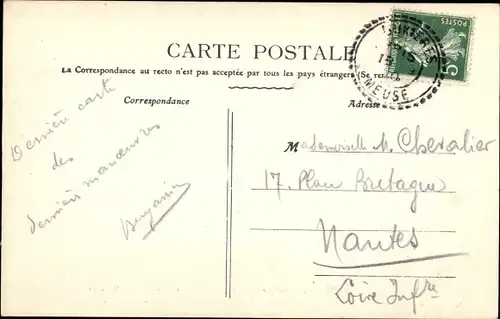 CARTE POSTALE
La Correspondance au recto n'est pas acceptée par tous les pays étrangers (Se ren
Correspondance
Adresse
POSTES
5
15
MEUSE
Dernière carte
des
dernières manœuvres
Benjamin
Mademoiselle M. Chevalier
17, Place Bretagne
Nantes
Loire Infre